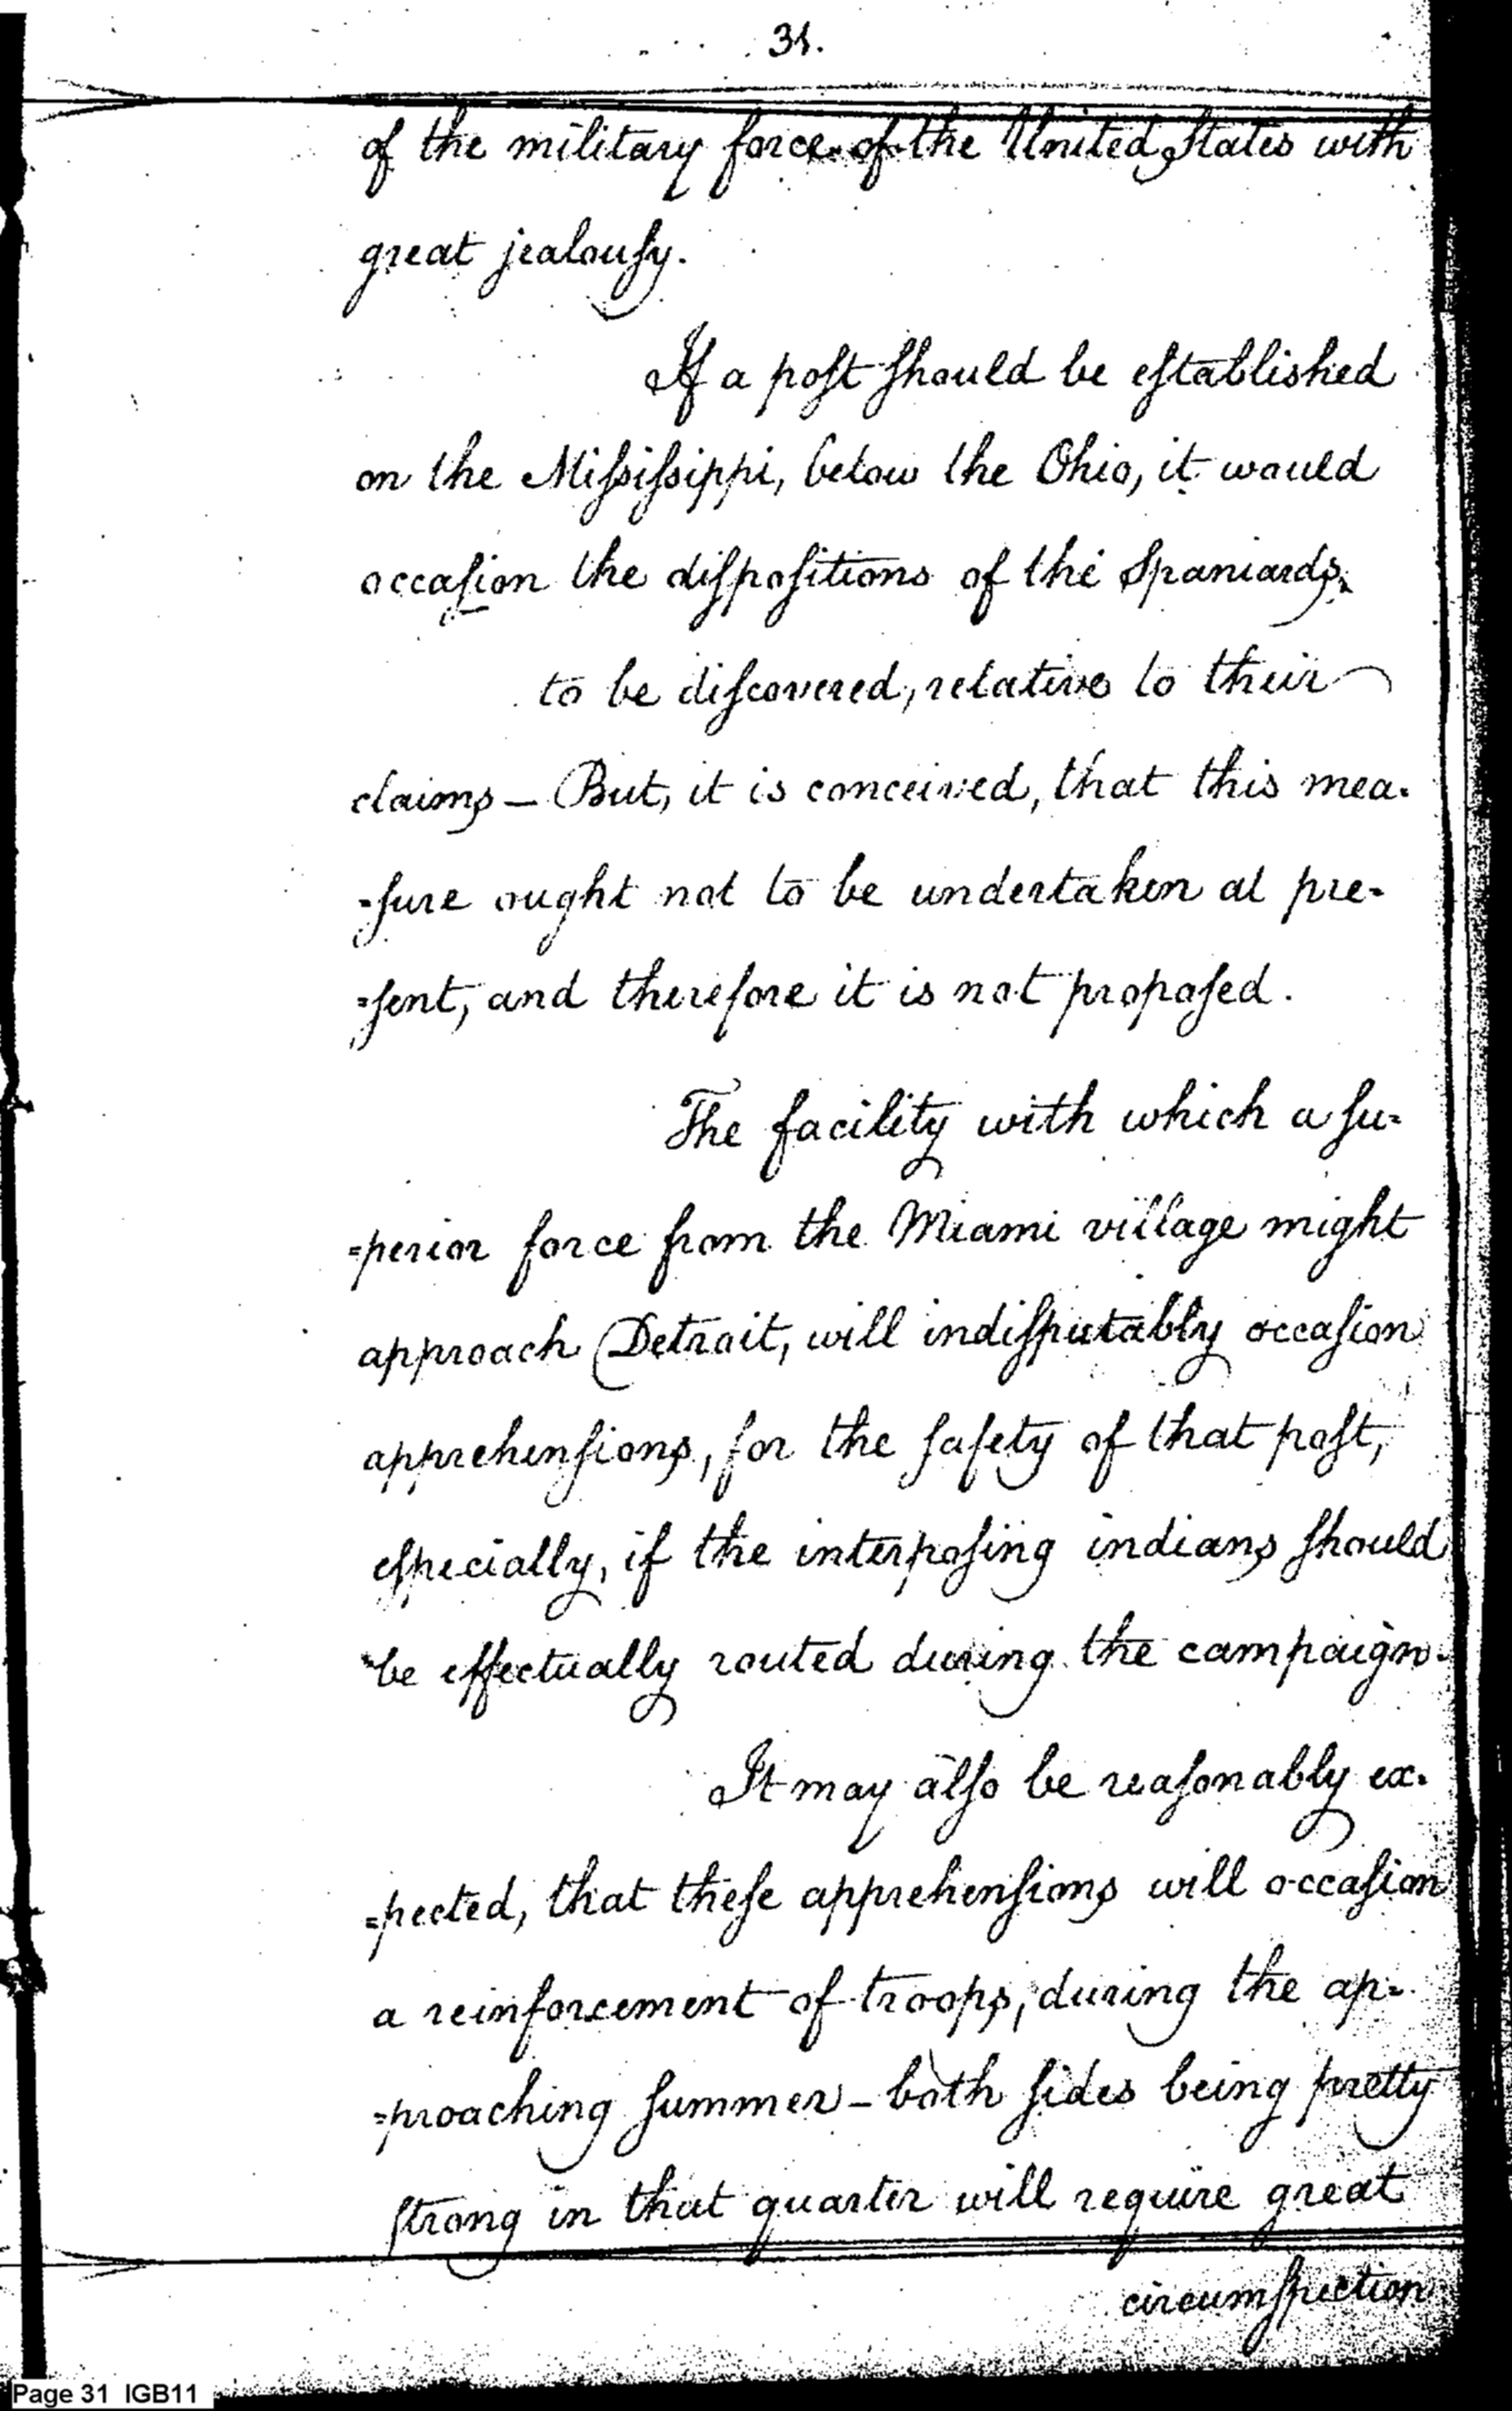 31.
of the military force of the United States with
great jealouſy.
If a poſt ſhould be eſtablished
on the Miſsiſsippi, below the Ohio, it would
occaſion the diſpoſitions of the Spaniards,
to be diſcovered, relative to their
claims — But, it is conceived, that this mea-
-ſure ought not to be undertaken at pre-
=ſent, and therefore it is not propoſed.
The facility with which a ſu-
=perior force from the Miami village might
approach Detroit, will indiſputably occaſion
apprehenſions, for the ſafety of that poſt,
eſpecially, if the interpoſing indians ſhould
be effectually routed during the campaign.
It may alſo be reaſonably ex-
=pected, that theſe apprehenſions will occaſion
a reinforcement of troops, during the ap-
=proaching ſummer — both ſides being pretty
ſtrong in that quarter will require great
circumſpection
Page 31 IGB11